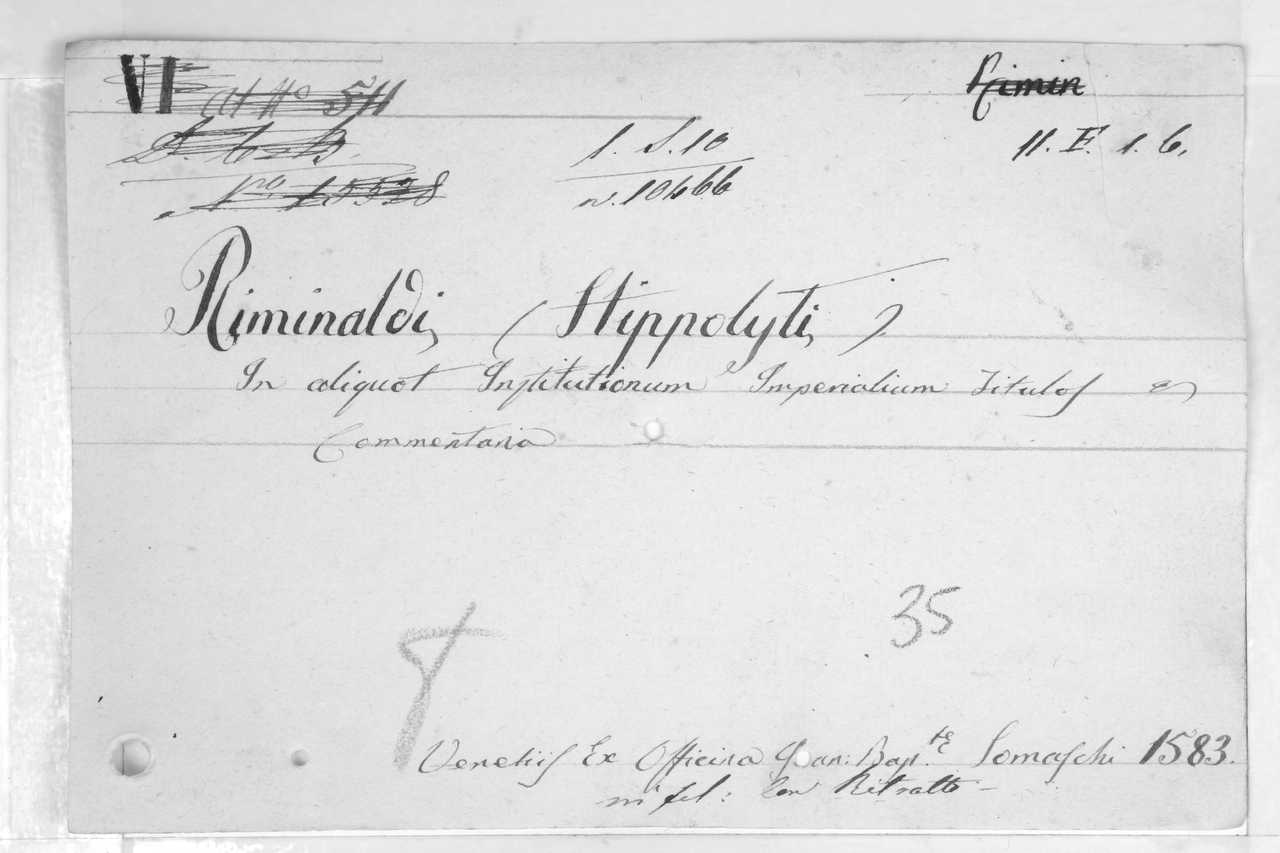 VI
Rimin
11. E. 1. 6.
1. S. 10
n. 10466
No 15528
Riminaldi (Hippolyti)
In aliquot Institutionum Imperialium Titulos
Commentaria
35
Venetiis Ex Officina Joan: Bap.tae Somaschi 1583.
in fol: Con Ritratto –